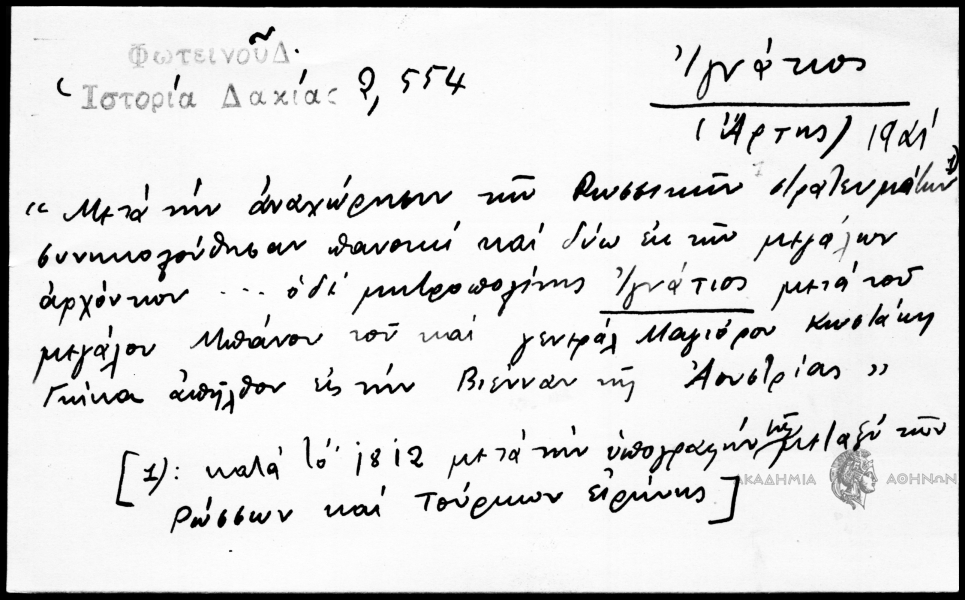 Φωτεινοῦ Δ.
Ἱστορία Δακίας 2, 554
Ἰγνάτιος
(Ἄρτης) 1821
"Μετά τήν ἀναχώρησιν τῶν Ρωσσικῶν στρατευμάτων 1)
συνηκολούθησαν πανοικί καί δύω ἐκ τῶν μεγάλων
ἀρχόντων ... ὁ δέ μητροπολίτης Ἰγνάτιος μετά τοῦ
μεγάλου Μπάνου τοῦ καί γενεράλ Μαγιόρου Κωστάκη
Γκίκα ἀπῆλθον εἰς τήν Βιένναν τῆς Ἀουστρίας"
[1): κατά τό 1812 μετά τήν ὑπογραφήν τῆς μεταξύ τῶν
Ρώσσων καί Τούρκων εἰρήνης]
ΑΚΑΔΗΜΙΑ ΑΘΗΝΩΝ